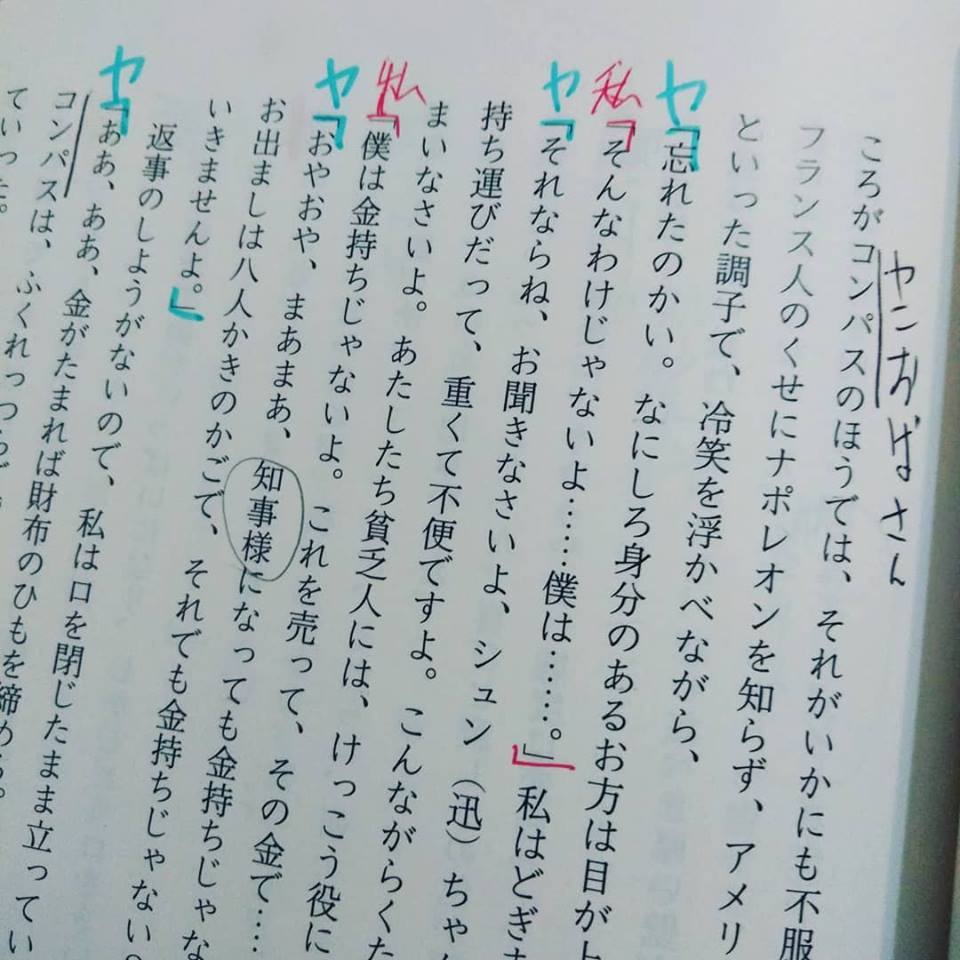 ヤンおばさん
ころがコンパスのほうでは、それがいかにも不服
フランス人のくせにナポレオンを知らず、アメリ
といった調子で、冷笑を浮かべながら、
ヤ「忘れたのかい。なにしろ身分のあるお方は目が上
私「そんなわけじゃないよ……僕は……。」私はどぎま
ヤ「それならね、お聞きなさいよ、シュン(迅)ちゃん
持ち運びだって、重くて不便ですよ。こんながらくた
まいなさいよ。あたしたち貧乏人には、けっこう役に
私「僕は金持ちじゃないよ。これを売って、その金で……
ヤ「おやおや、まあまあ、知事様になっても金持ちじゃな
お出ましは八人かきのかごで、それでも金持ちじゃない。
いきませんよ。」
返事のしようがないので、私は口を閉じたまま立ってい
ヤ「ああ、ああ、金がたまれば財布のひもを締める。
コンパスは、ふくれっつらで
ていった。